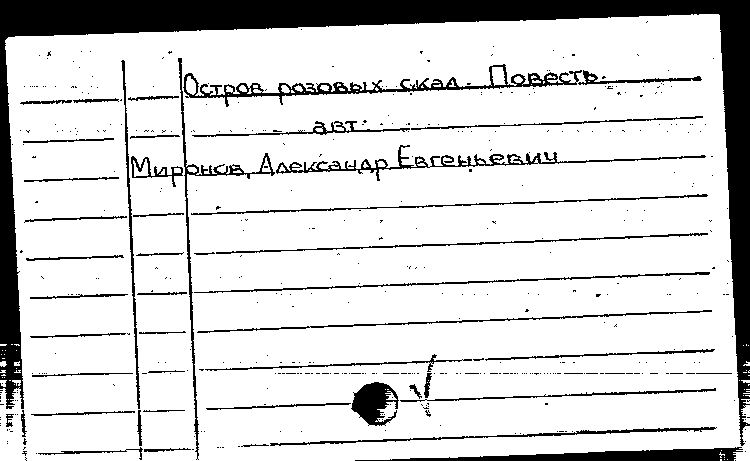 Остров розовых скал. Повесть.
авт:
Миронов, Александр Евгеньевич